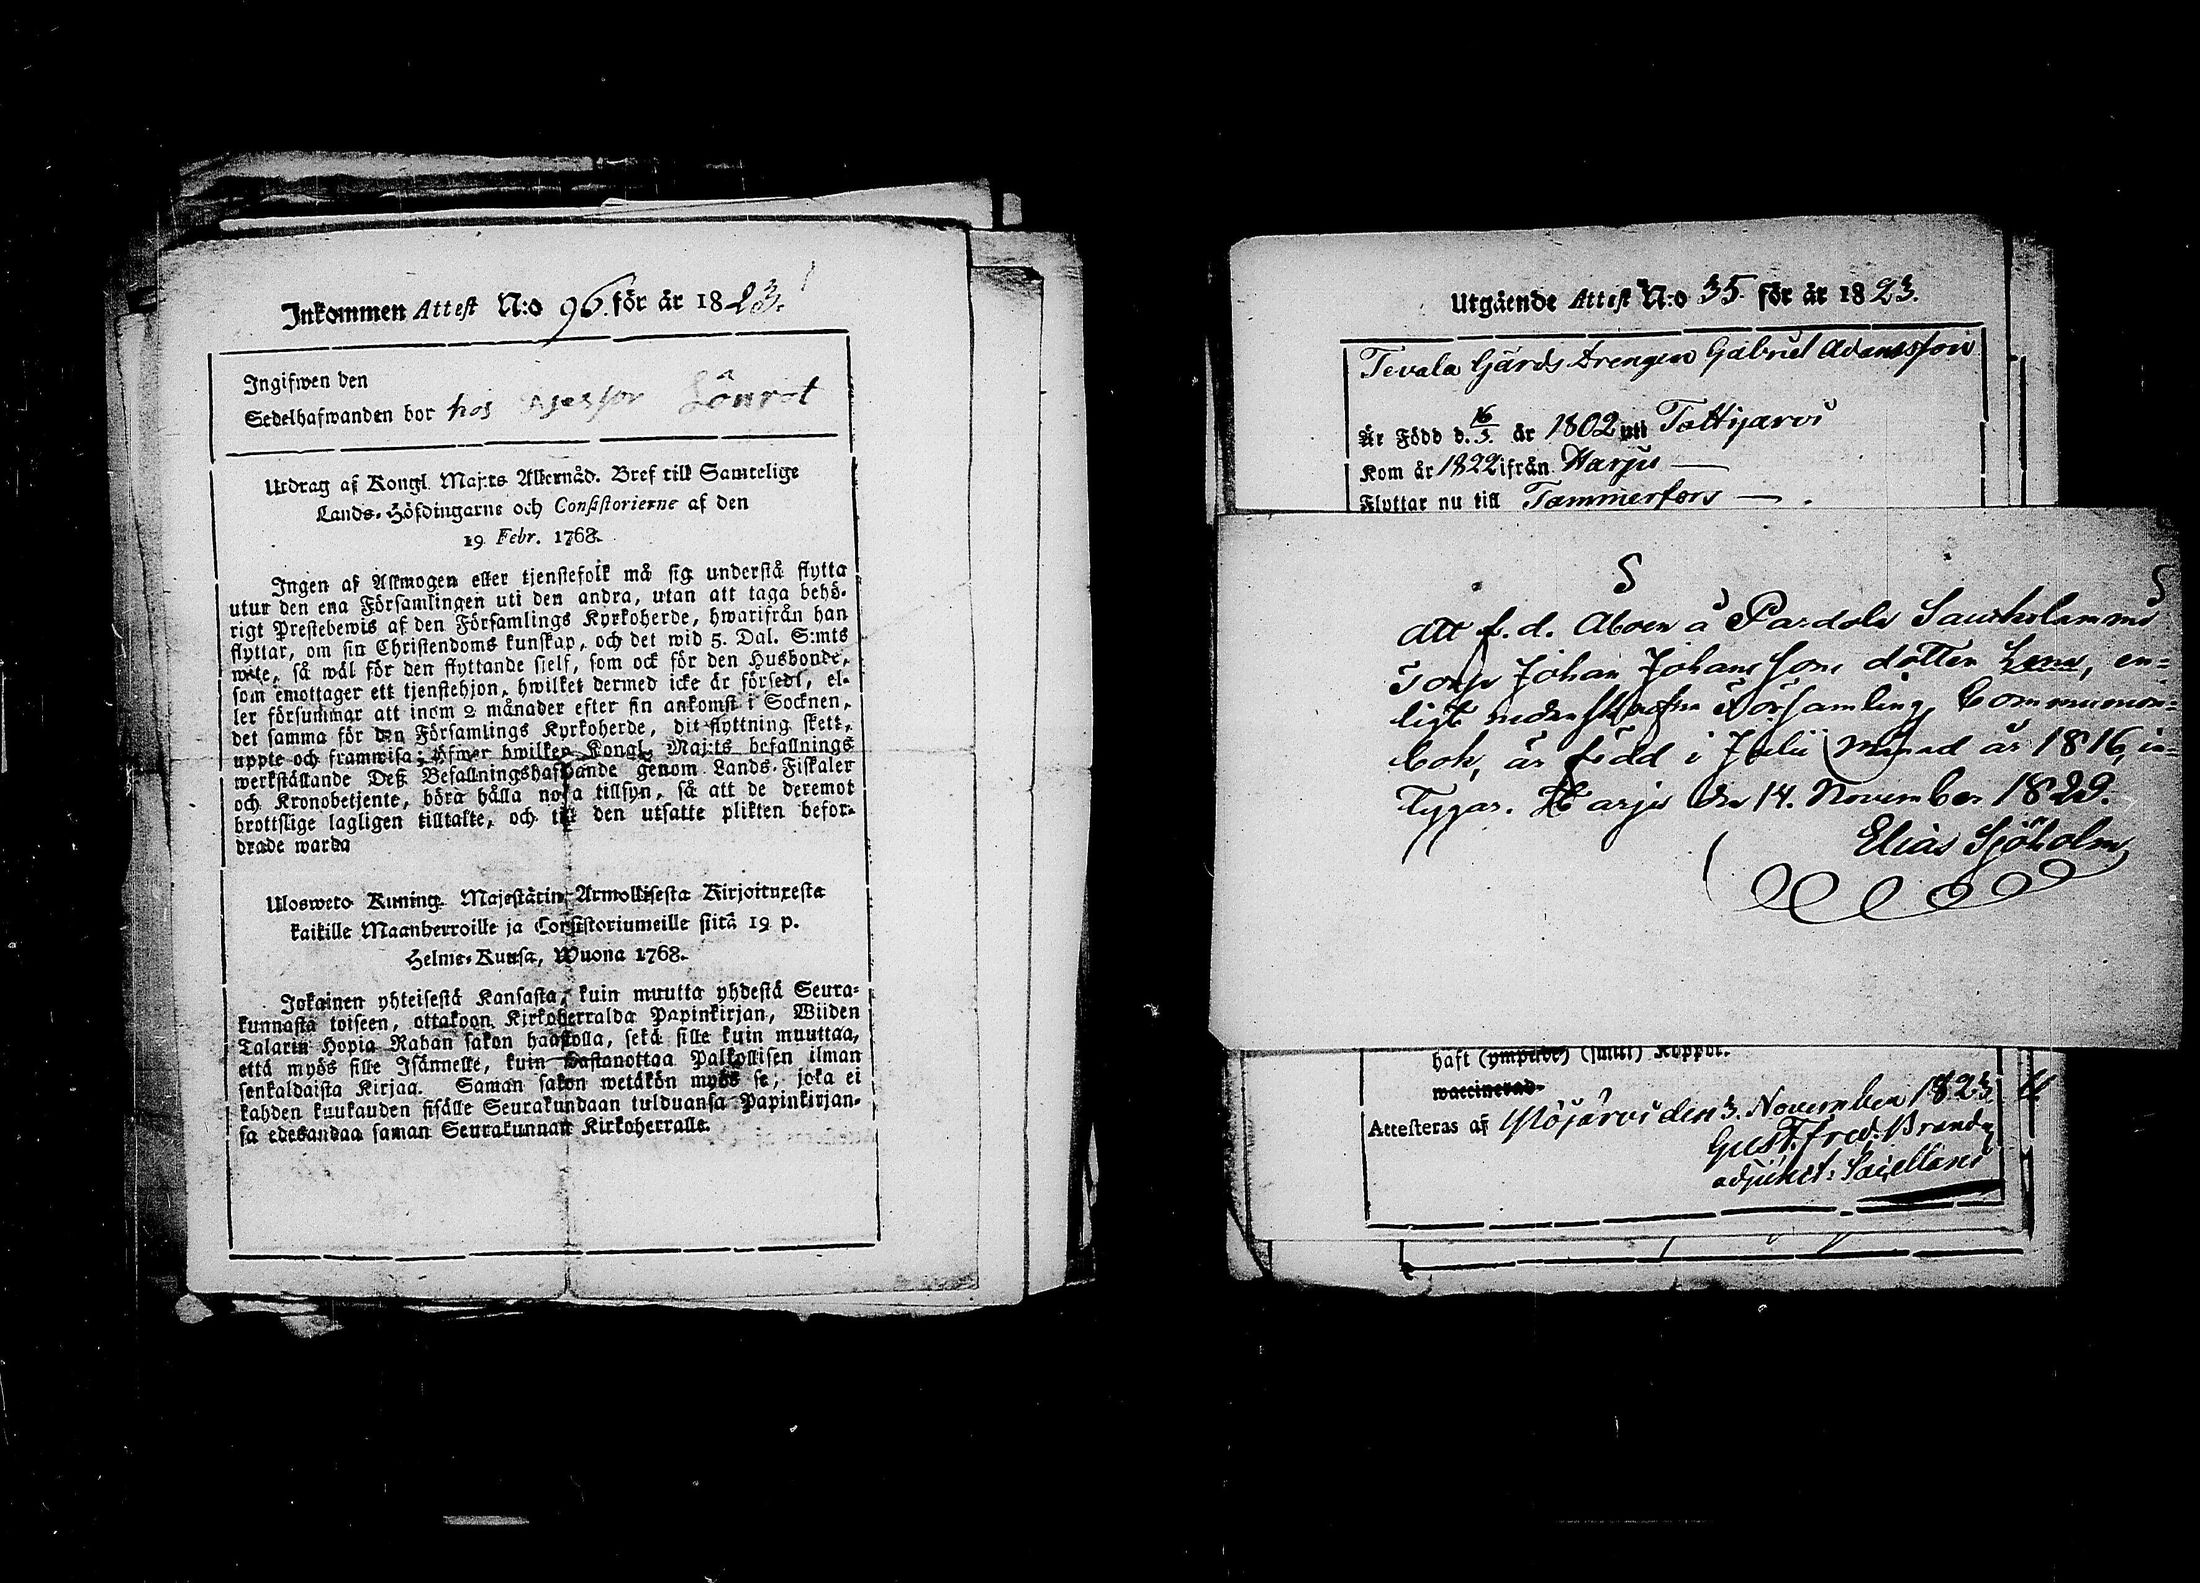 Inkommen Attest N:o 96. för år 1823.
Ingifwen den
Sedelhafwanden bor hos Assessor Lönrot
Utdrag af Kongl. Maj:ts Allernåd. Bref till Samtelige
Lands-Höfdingarne och Consistorierne af den
19 Febr. 1768.
Ingen af Allmogen eller tjenstefolk må sig understå flytta
utur den ena Församlingen uti den andra, utan att taga behö-
rigt Prestebewis af den Församlings Kyrkoherde, hwarifrån han
flyttar, om sin Christendoms kunskap, och det wid 5. Dal. S:mts
wite, så wäl för den flyttande sielf, som ock för den Husbonde,
som emottager ett tjenstehjon, hwilket dermed icke är försedt, el-
ler försummar att inom 2 månader efter sin ankomst i Socknen,
det samma för den Församlings Kyrkoherde, dit flyttning skett,
uppte och framwisa; öfwer hwilken Kongl. Maj:ts befallnings
werkställande Deß Befallningshafwande genom Lands-Fiskaler
och Kronobetjente, böra hålla noga tillsyn, så att de deremot
brottslige lagligen tilltalte, och till den utsatte plikten befor-
drade warda
Ulosweto Kuning. Majestätin Armollisesta Kirjoituxesta
kaikille Maanherroille ja Consistoriumeille siitä 19 p.
Helme-Kuusa, Wuona 1768.
Jokainen yhteisestä Kansasta, kuin muutta yhdestä Seura-
kunnasta toiseen, ottakoon Kirkoherralda Papinkirjan, Wiiden
Talarin Hopia Rahan sakon haastolla, sekä sille kuin muuttaa,
että myös sille Isännelle, kuin wastanottaa Palkollisen ilman
senkaldaista Kirjaa. Saman sakon wetäkön myös se, joka ei
kahden kuukauden sisälle Seurakundaan tulduansa Papinkirjan-
sa edesandaa saman Seurakunnan Kirkoherralle.
Utgående Attest N:o 35. för år 1823.
Tevala Gårds Drengen Gabriel Adamsson
Är Född d. 16/3. år 1802 uti Tottijarvi
Kom år 1822 ifrån Harju
Flyttar nu till Tammerfors
S
Att f.d. Åboen å Pardola Johan Johanssons dotter Lena, en-
ligt nedanskrefne Församlings Communion-
bok, är född i Julii månad år 1816, in-
tygar. Harju den 14. November 1829.
Elias Sjöholm
haft (ympade) (smitt) Koppor.
waccinerad
Attesteras af Ylöjärvi den 3. November 1823.
Gust. Fred. Brand
adjunct. Sacellani